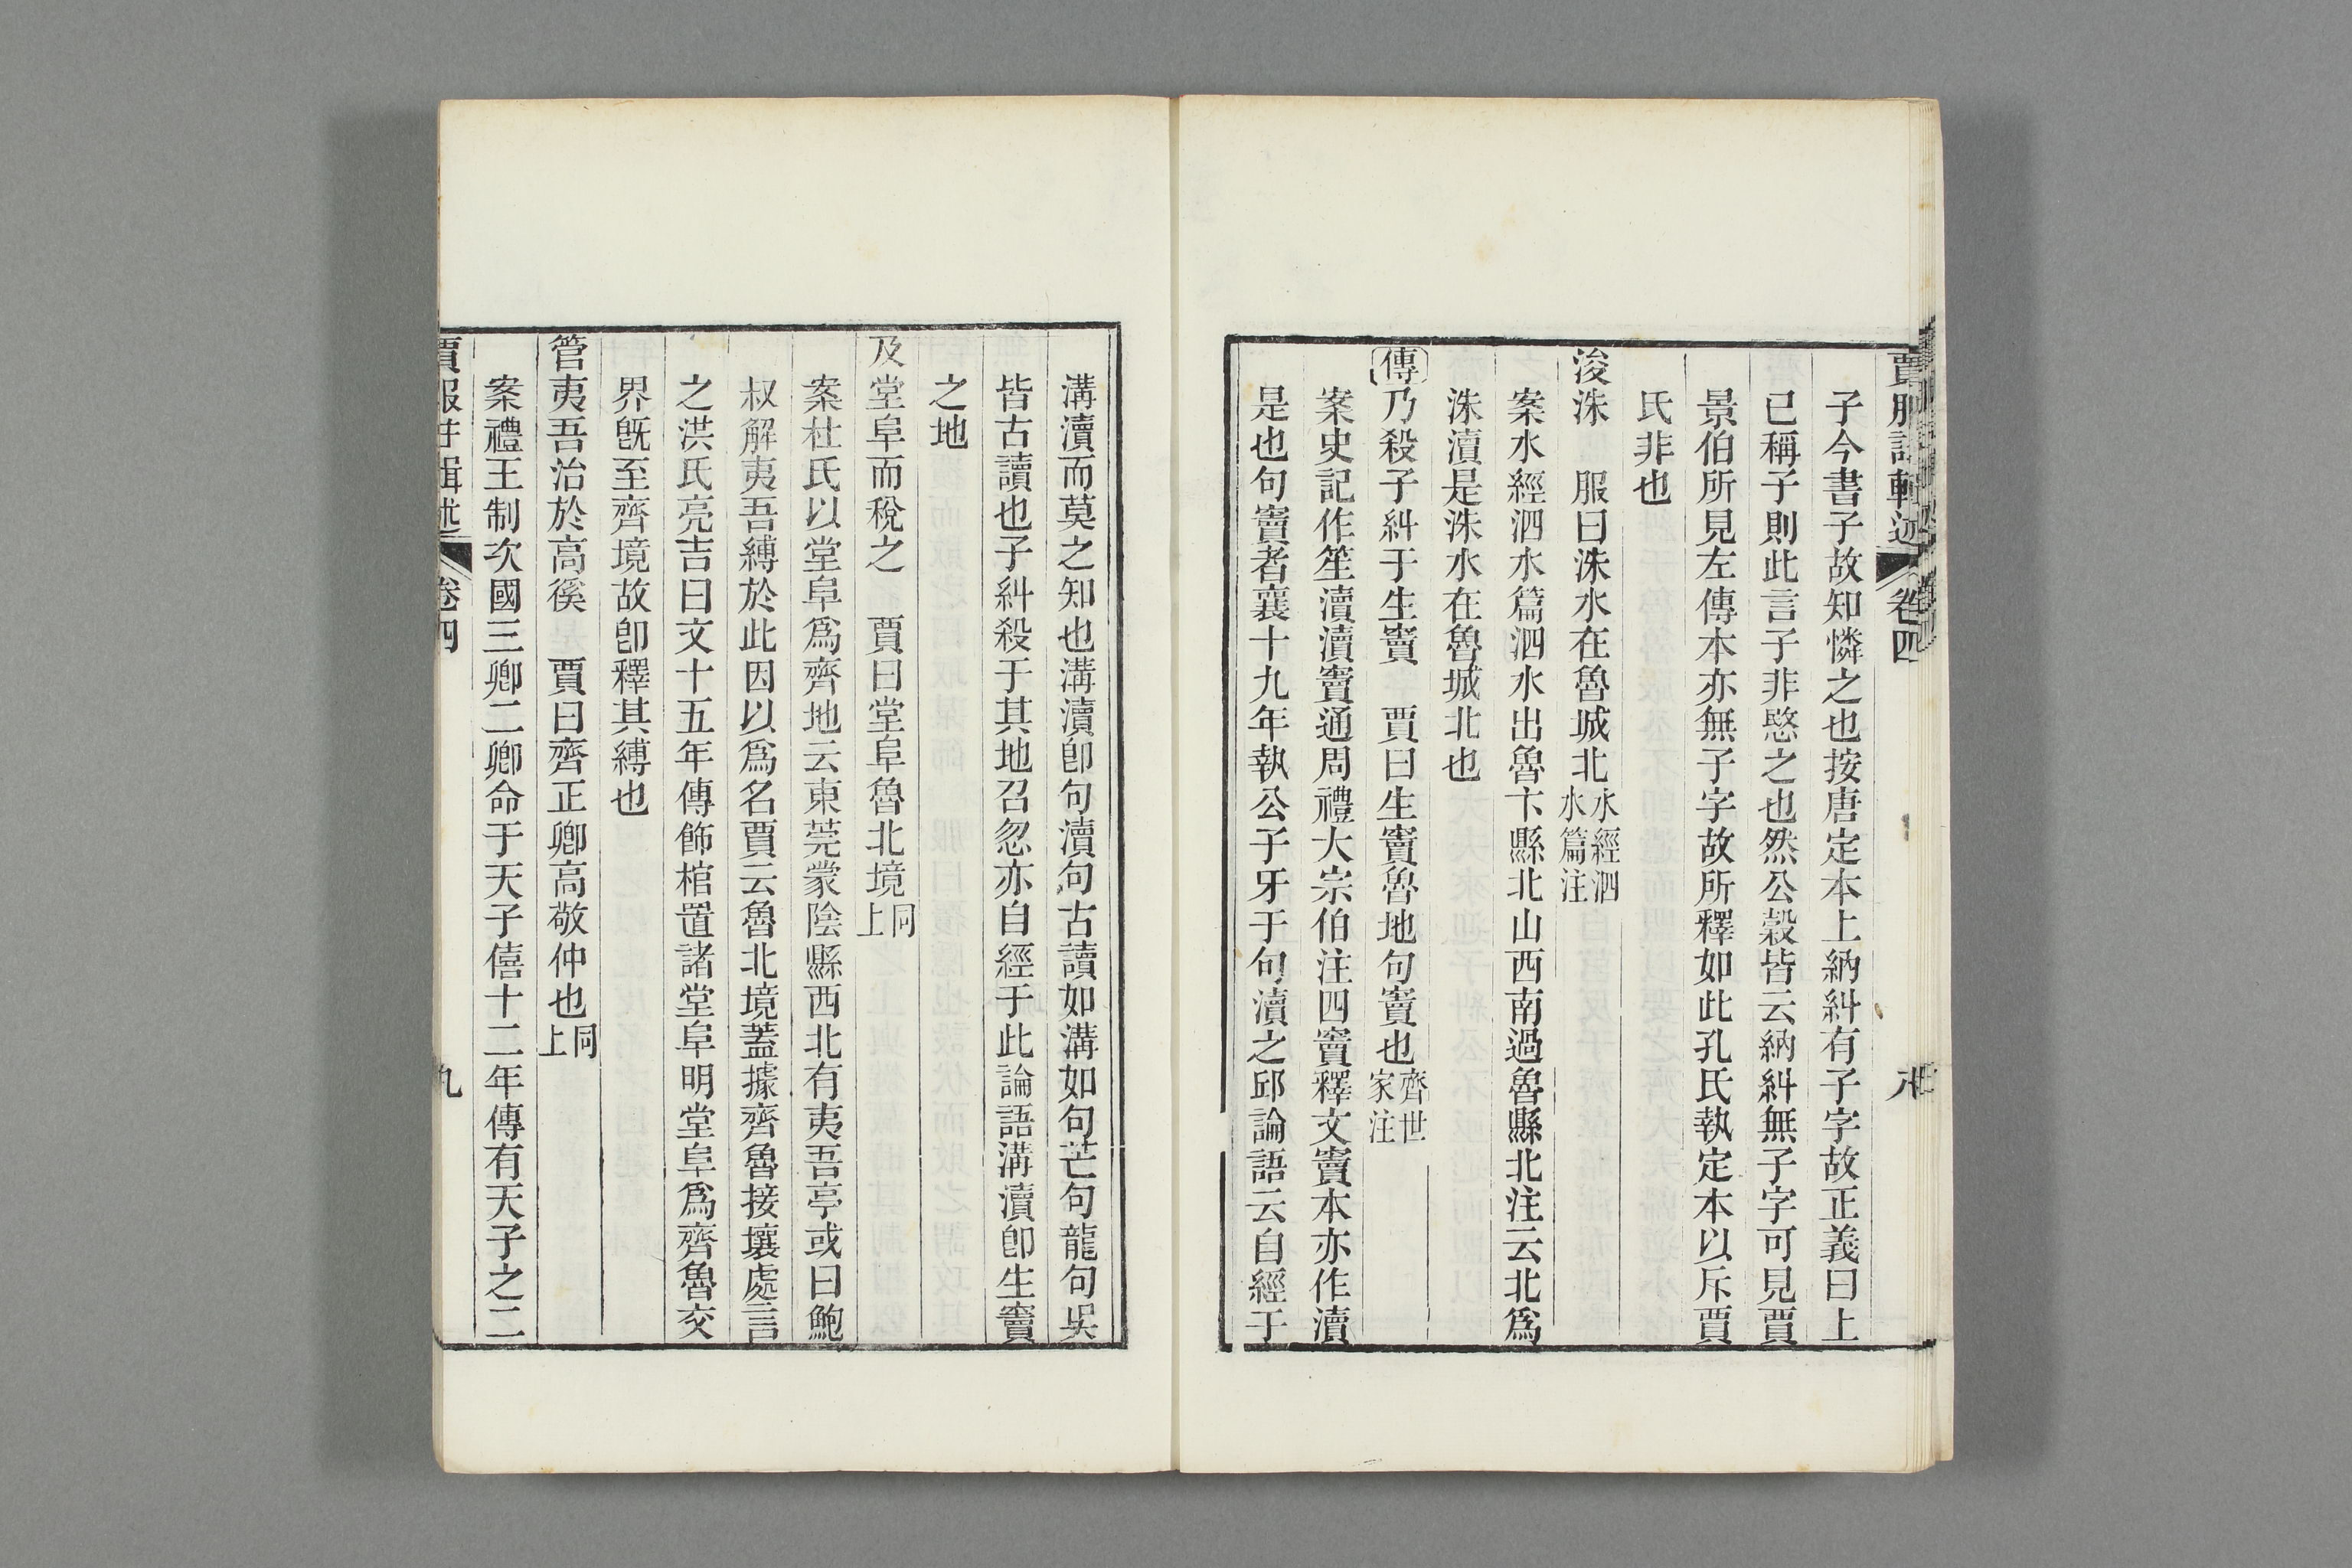 賈服註輯述 卷四 八
子今書子故知憐之也按唐定本上納糾有子字故正義曰上
已稱子則此言子非愍之也然公穀皆云納糾無子字可見賈
景伯所見左傳本亦無子字故所釋如此孔氏執定本以斥賈
氏非也
浚洙 服曰洙水在魯城北水經泗水篇注
案水經泗水篇泗水出魯卞縣北山西南過魯縣北注云北爲
洙瀆是洙水在魯城北也
傳乃殺子糾于生竇 賈曰生竇魯地句竇也齊世家注
案史記作笙瀆瀆竇通周禮大宗伯注四竇釋文竇本亦作瀆
是也句竇者襄十九年執公子牙于句瀆之邱論語云自經于
溝瀆而莫之知也溝瀆卽句瀆句古讀如溝如句芒句龍句吳
皆古讀也子糾殺于其地召忽亦自經于此論語溝瀆卽生竇
之地
及堂阜而稅之 賈曰堂阜魯北境同上
案杜氏以堂阜爲齊地云東莞蒙陰縣西北有夷吾亭或曰鮑
叔解夷吾縛於此因以爲名賈云魯北境蓋據齊魯接壤處言
之洪氏亮吉曰文十五年傳飾棺置諸堂阜明堂阜爲齊魯交
界旣至齊境故卽釋其縛也
管夷吾治於高傒 賈曰齊正卿高敬仲也同上
案禮王制次國三卿二卿命于天子僖十二年傳有天子之二
賈服註輯述 卷四 九